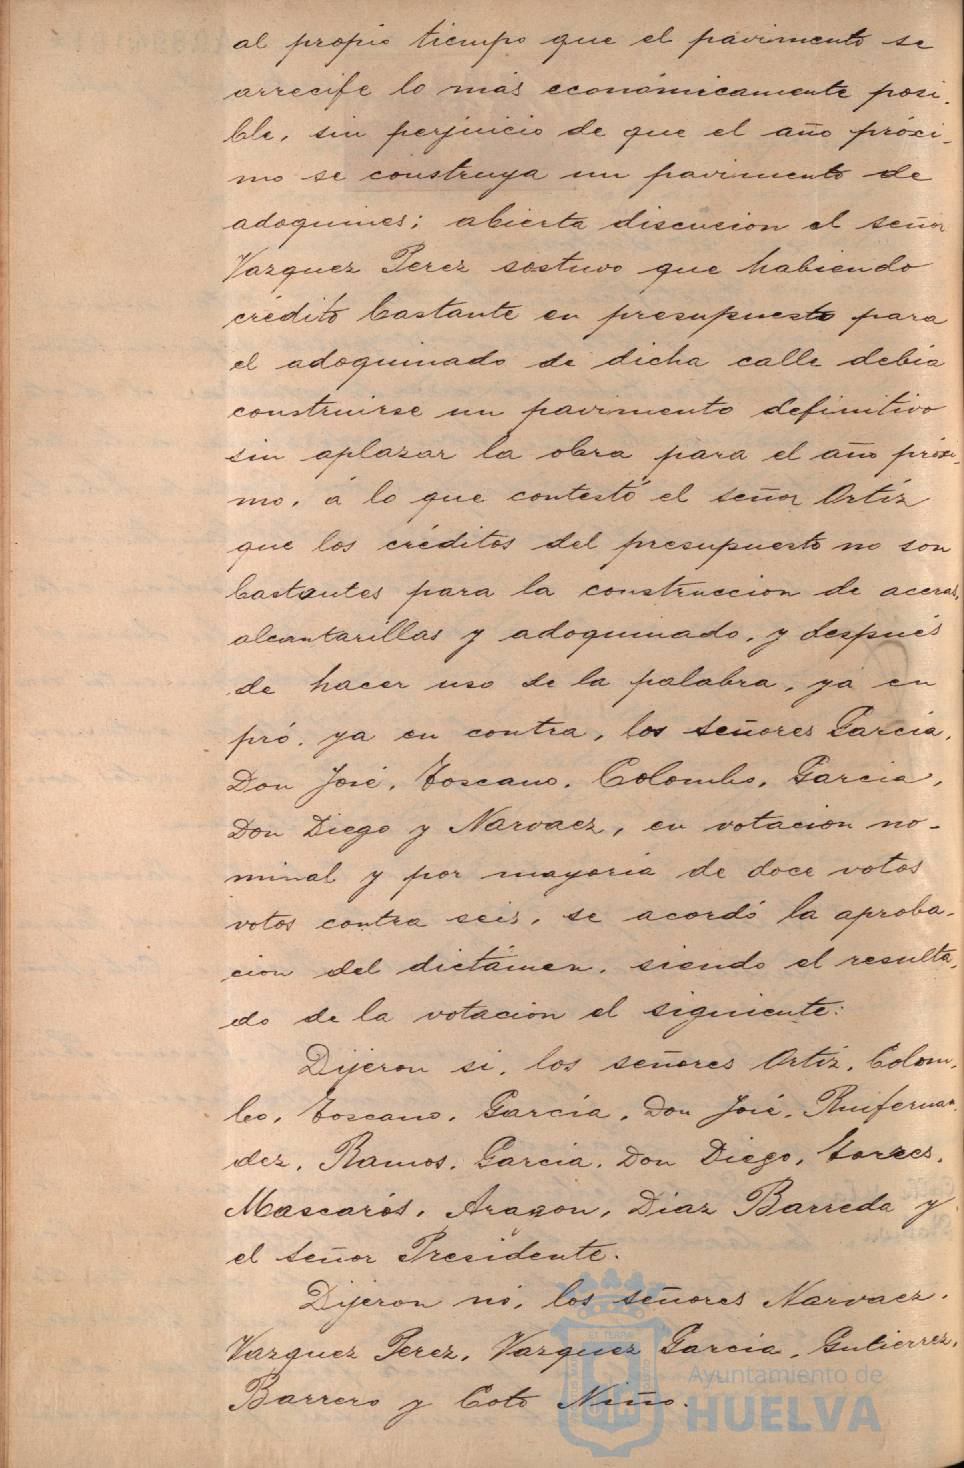 al propio tiempo que el pavimento se
arrecife lo más económicamente posi-
ble, sin perjuicio de que el año próxi-
mo se construya un pavimento de
adoquines; abierta discucion el señor
Vazquez Perez sostuvo que habiendo
crédito bastante en presupuesto para
el adoquinado de dicha calle debia
construirse un pavimento definitivo
sin aplazar la obra para el año próxi-
mo, á lo que contestó el señor Ortíz
que los créditos del presupuesto no son
bastantes para la construccion de aceras,
alcantarillas y adoquinado, y después
de hacer uso de la palabra, ya en
pró, ya en contra, los señores García,
Don José, Toscano, Colombo, Garcia,
Don Diego y Narvaez, en votacion no-
minal y por mayoria de doce votos
votos contra seis, se acordó la aproba-
cion del dictámen, siendo el resulta-
do de la votacion el siguiente:
Dijeron si, los señores Ortíz, Colom-
bo, Toscano, García, Don José, Ruifernan-
dez, Ramos, Garcia, Don Diego, Torres,
Mascarós, Aragon, Diaz Barreda y
el señor Presidente.
Dijeron nó, los señores Narvaez,
Vazquez Perez, Vazquez García, Gutierrez,
Barrero y Coto Niño.
Ayuntamiento de
HUELVA